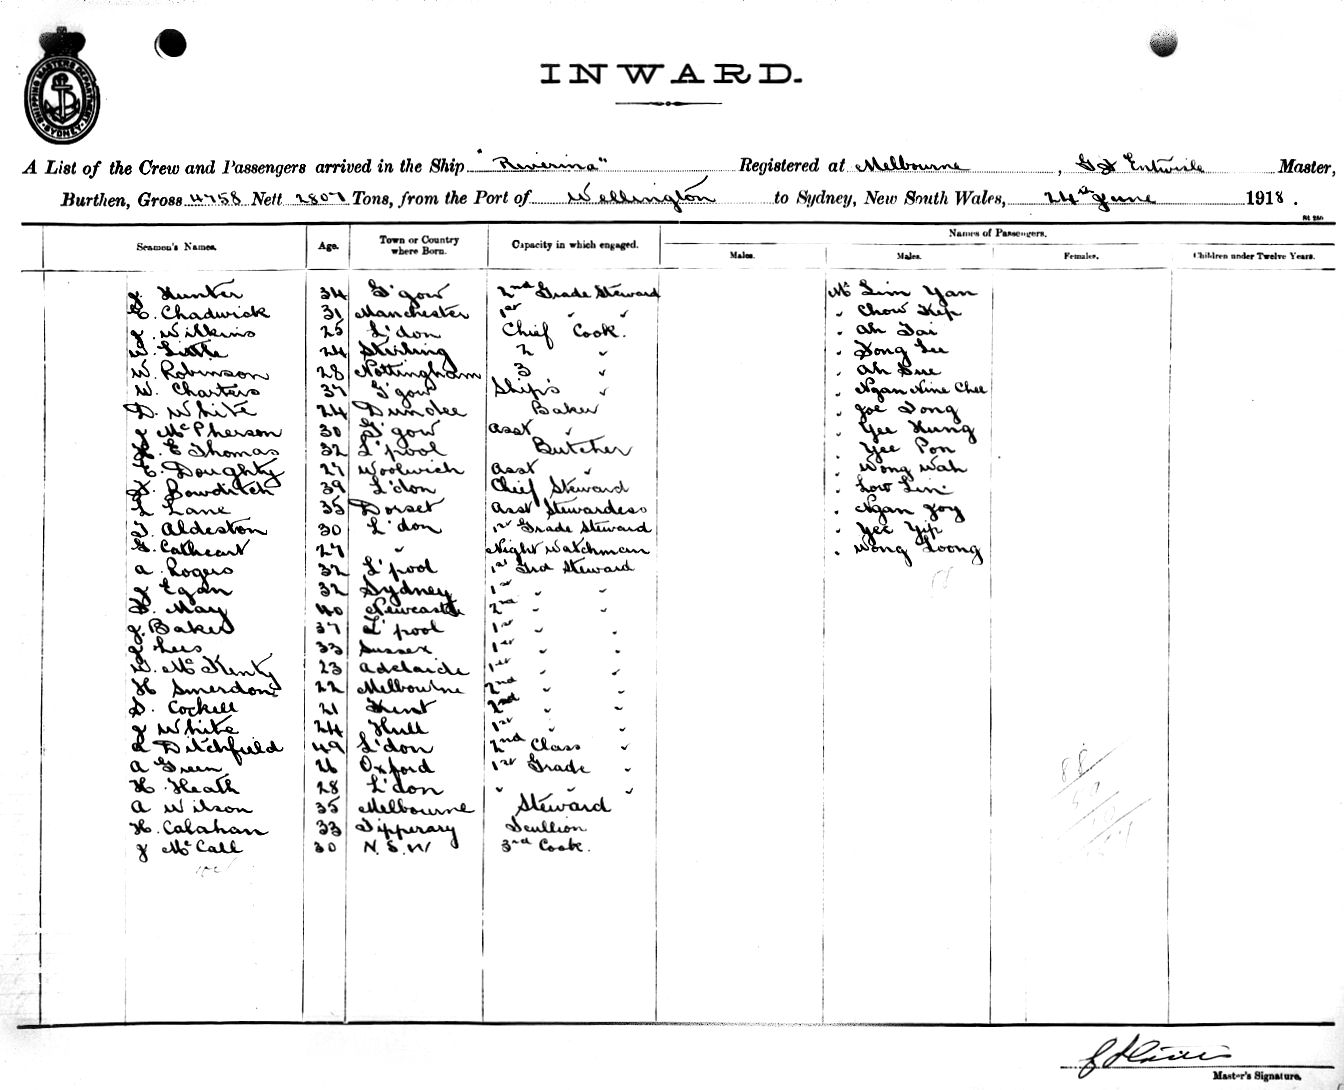 INWARD.
SHIPPING MASTERS DEPARTMENT SYDNEY
A List of the Crew and Passengers arrived in the Ship "Riverina" Registered at Melbourne, Master,
Burthen, Gross 4758 Nett 2807 Tons, from the Port of Wellington to Sydney, New South Wales, 24th June 1918.
Seamen's Names. Age. Town or Country where Born. Capacity in which engaged. Names of Passengers.
Males. Males. Females. Children under Twelve Years.
J. Hunter 34 G'gow 2nd Grade Steward Mr Lim Yan
E. Chadwick 31 Manchester 1st " " " Chow Kip
J Wilkins 25 L'don Chief Cook. " Ah Tai
W. Little 24 Stirling 2 " " Dong Lee
W. Robinson 28 Nottingham 3 " " Ah Sue
W. Charters 37 G'gow Ship's " " Ngan Nine Chee
D. White 24 Dundee Baker " Joe Dong
J McPherson 30 G'gow Asst " " Yee Hung
H. E Thomas 32 L'pool Butcher " Yee Pon
E. Doughty 27 Woolwich Asst " " Wong Wah
Bowditch 39 L'don Chief Steward " Low Lin
L Lane 35 Dorset Asst Stewardess " Ngan Joy
T. Aldeston 30 L'don 1st Grade Steward " Yee Yip
G. Cathcart 27 " Night Watchman " Wong Loong
A. Rogers 32 L'pool 1st Grd Steward
J Egan 32 Sydney 1st " "
May 40 Newcastle 2nd " "
J. Baker 37 L'pool 1st " "
J Lees 33 Sussex 1st " "
D. McKenty 23 Adelaide 1st " "
H Smerdon 22 Melbourne 2nd " "
S. Cockell 21 Kent 2nd " "
J White 24 Hull 1st " "
R Ditchfield 49 L'don 2nd Class "
A Green 26 Oxford 1st Grade "
H. Heath 28 L'don " " "
A Wilson 35 Melbourne Steward
H. Calahan 33 Tipperary Scullion
J McCall 30 N.S.W 3rd Cook.
Master's Signature.